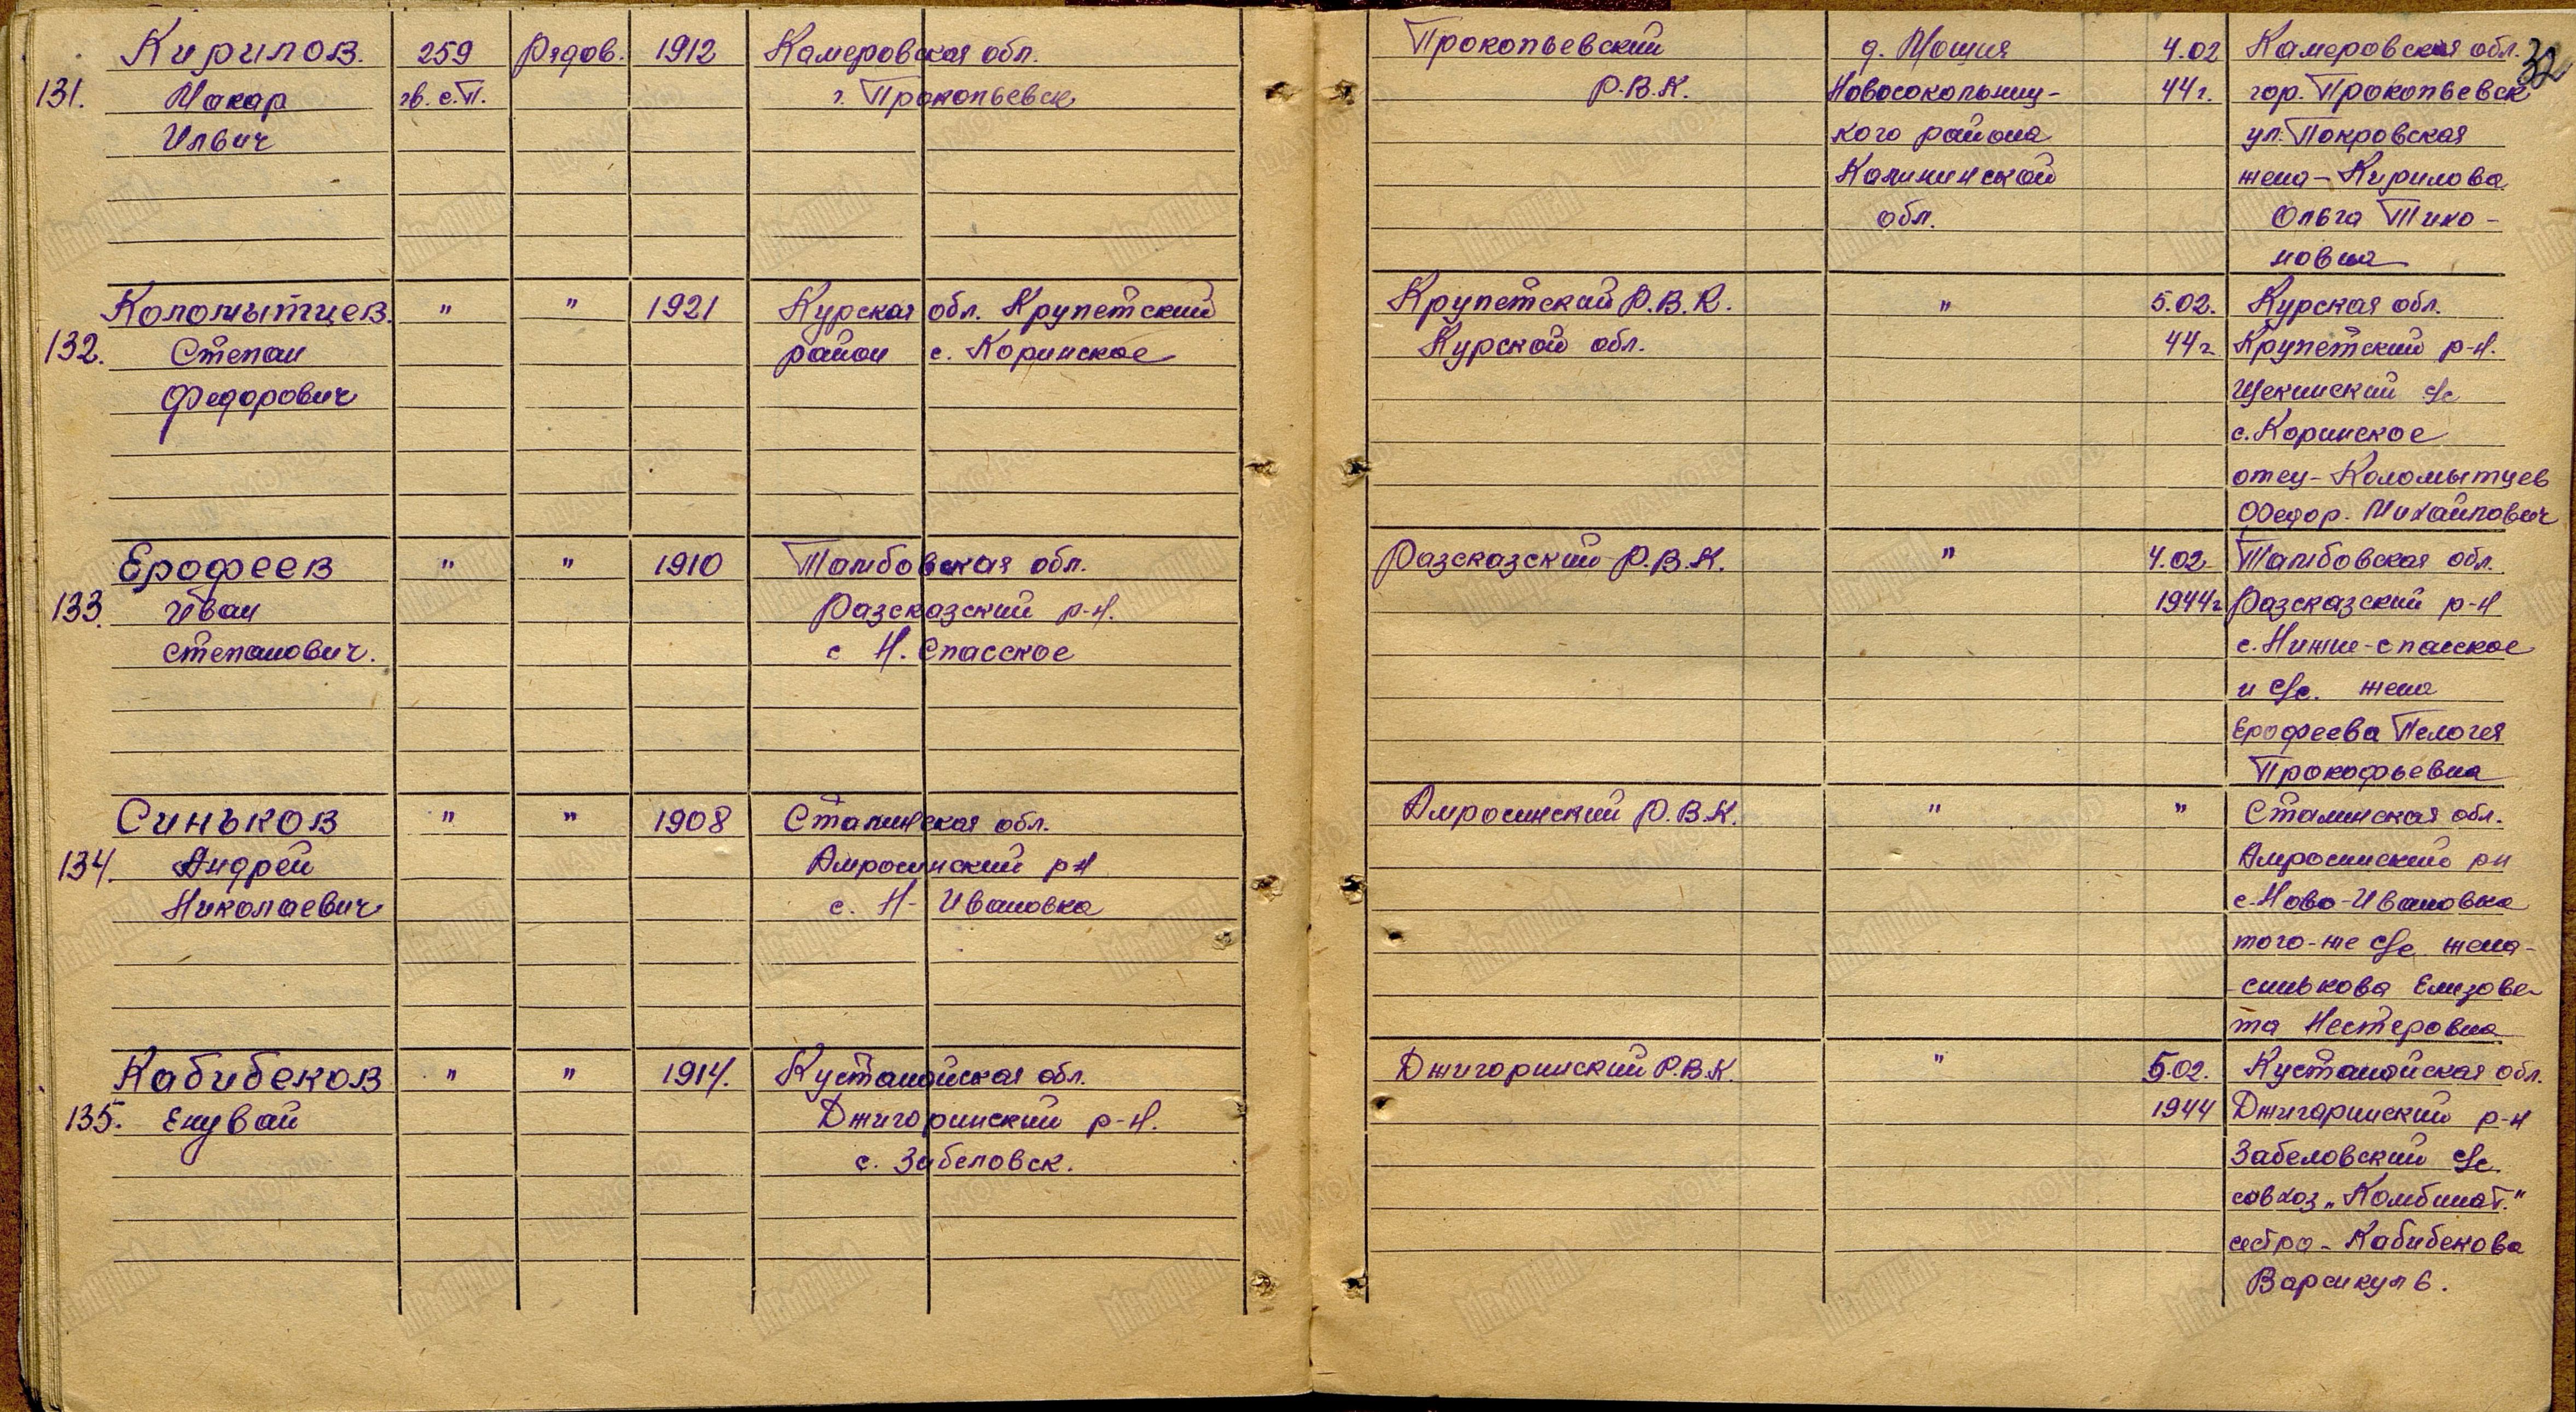 32
Кирилов. 259 Рядов. 1912 Камеровская обл. Прокопьевский д. Мощия 4.02 Камеровская обл.
131. Макар гв. с.п. г. Прокопьевск Р.В.К. Новосокольниц- 44 г. гор. Прокопьевск
Илвич кого района ул. Покровская
Калининской жена - Кирилова
обл. Ольга Тихо-
новна
Коломытцев. " " 1921 Курская обл. Крупетский Крупетский Р.В.К. " 5.02. Курская обл.
132. Степан район с. Коринское Курской обл. 44 г Крупетский р-н.
Федорович Щекинский с/с
с. Коринское
отец - Коломытцев
Федор. Михайлович
Ерофеев " " 1910 Тамбовская обл. Разсказский Р.В.К. " 4.02 Тамбовская обл.
133. Иван Разсказский р-н. 1944г Разсказский р-н
Степанович. с Н. Спасское с. Нижне-спасское
и с/с. жена
Ерофеева Пелогея
Прокофьевна
Синьков " " 1908 Сталинская обл. Амросинский Р.В.К. " " Сталинская обл.
134. Андрей Амросинский р-н Амросинский рн
Николаевич с. Н- Ивановка с. Ново-Ивановка
того-же с/с жена-
синькова Елизове-
та Нестеровна
Кабибеков " " 1914. Кустанайская обл. Джигоринский Р.В.К. " 5.02. Кустанайская обл.
135. Енувай Джигоринский р-н. 1944 Джигаринский р-н
с. Забеловск. Забеловский с/с
совхоз „Комбинат."
сестра - Кабибекова
Варсикуль.